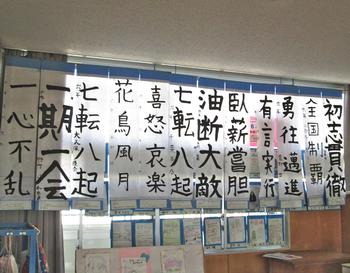 初志貫徹
全国制覇
勇往邁進
有言実行
臥薪嘗胆
油断大敵
七転八起
喜怒哀楽
花鳥風月
七転八起
一期一会
一心不乱